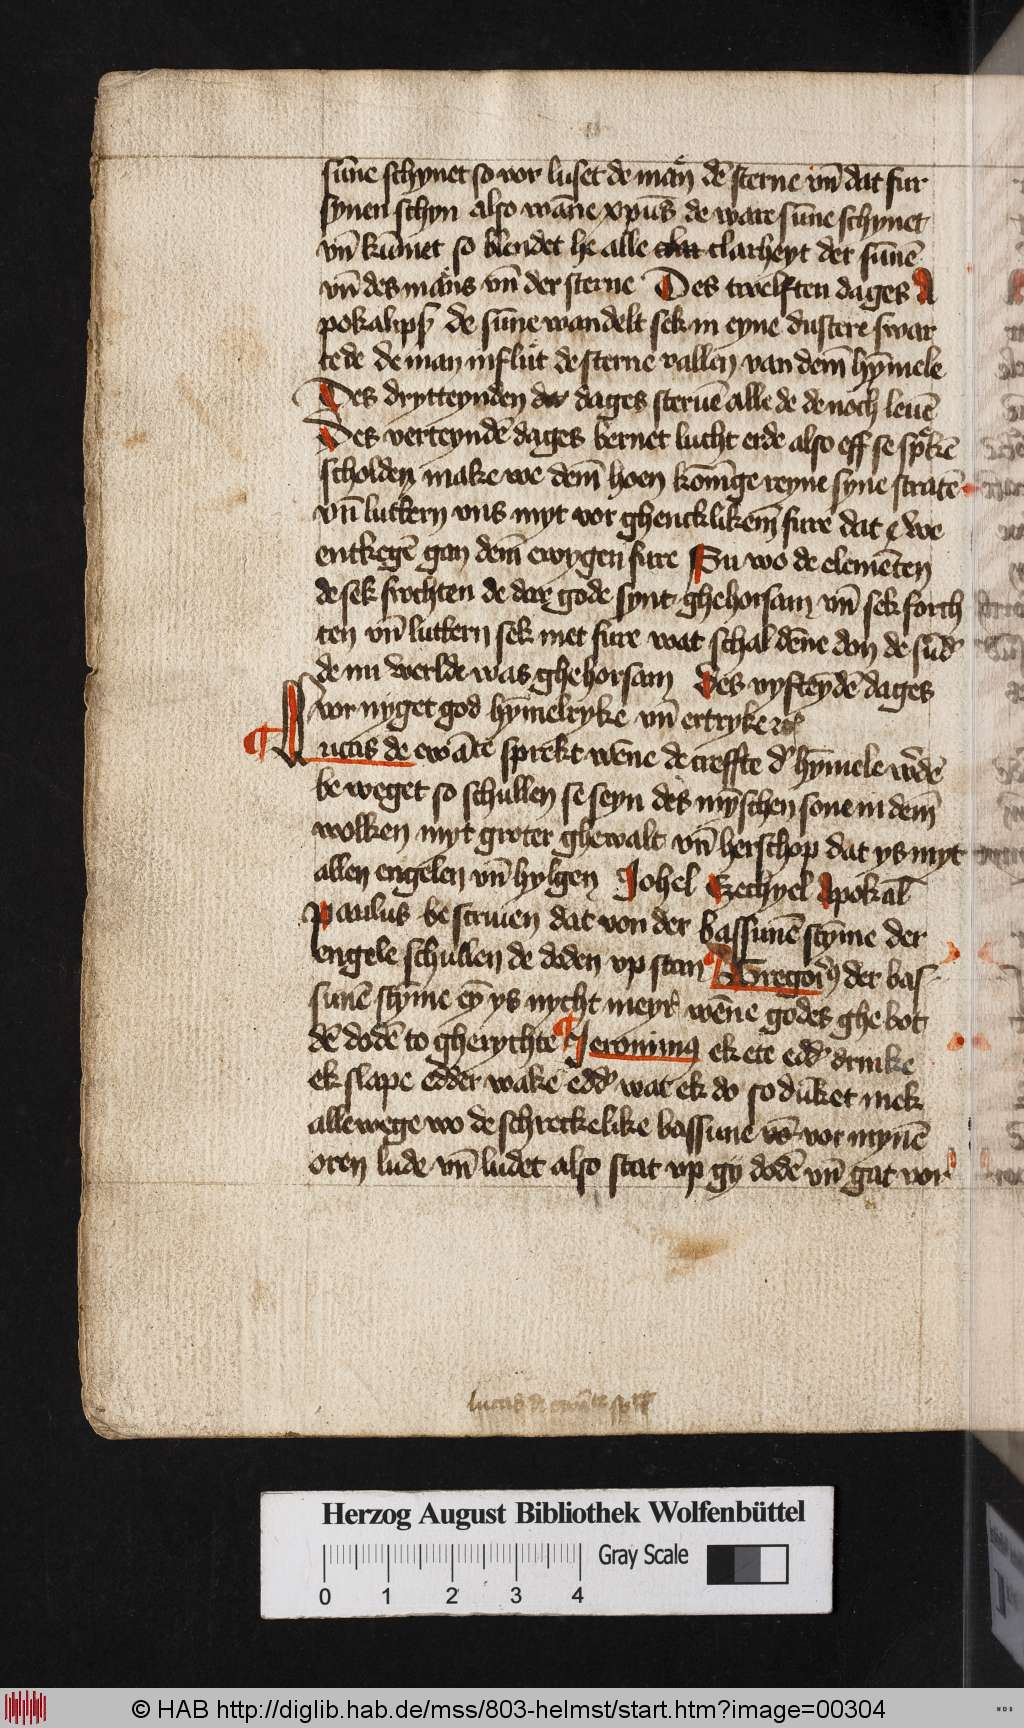 sūne schynet so vor luset de maͤn dē sterne vn̄ dat fur
synen schyn also wāne xpūs de ware sūne schynet
vn̄ kūmet so blendet he alle clar clarheyt der sūnē
vn̄ des maͤns vn̄ der sterne Des twelften dages A
pokalips de sūne wandelt sek in eyne dustere swar
tede de man in flut de sterne vallen van dem̄ hȳmele
Des drytteynden der dages steruē alle de de noch leuē
Des verteyndē dages bernet lucht erde also eff se sprekē
scholden make we dem̄ hoen konīge reyne syne stratē
vn̄ luttern vns myt vor ghencklikem̄ fure dat we
entkegē gan dem̄ ewygen fure Su wo de elemēten
de sek frochten de dar gode synt ghehorsam vn̄ sek forch
ten vn̄ luttern sek met fure wat schal dēne don de sūd
de ni werlde was ghehorsam Des vyfteydē dages
vor nyget god hȳmelryke vn̄ ertryke
Lucas de ewāte sprekt wēne de creffte d hȳmele wdē
be weget so schullen se seyn des mȳschen sone in dem̄
wolken myt groter ghewalt vn̄ herschop dat ys myt
allen engelen vn̄ hylgen Johel Ezechyel Apokal
Paulus be scriuen dat von der bassunē stȳme der
engele schullen de doden vp stan Gregori der bas
sunē stȳme ys nycht meyr wēne godes ghe bot
dē dodē to gherychte Jeronimus ek ete edd drinke
ek slape edder wake edd wat ek do so dūket mek
alle wege wo de schreckelike bassune vor mynē
oren lude vn̄ ludet also stat vp gy dodē vn̄ gat vor
lucas de ewāte
Herzog August Bibliothek Wolfenbüttel
Gray Scale
0 1 2 3 4
© HAB http://diglib.hab.de/mss/803-helmst/start.htm?image=00304